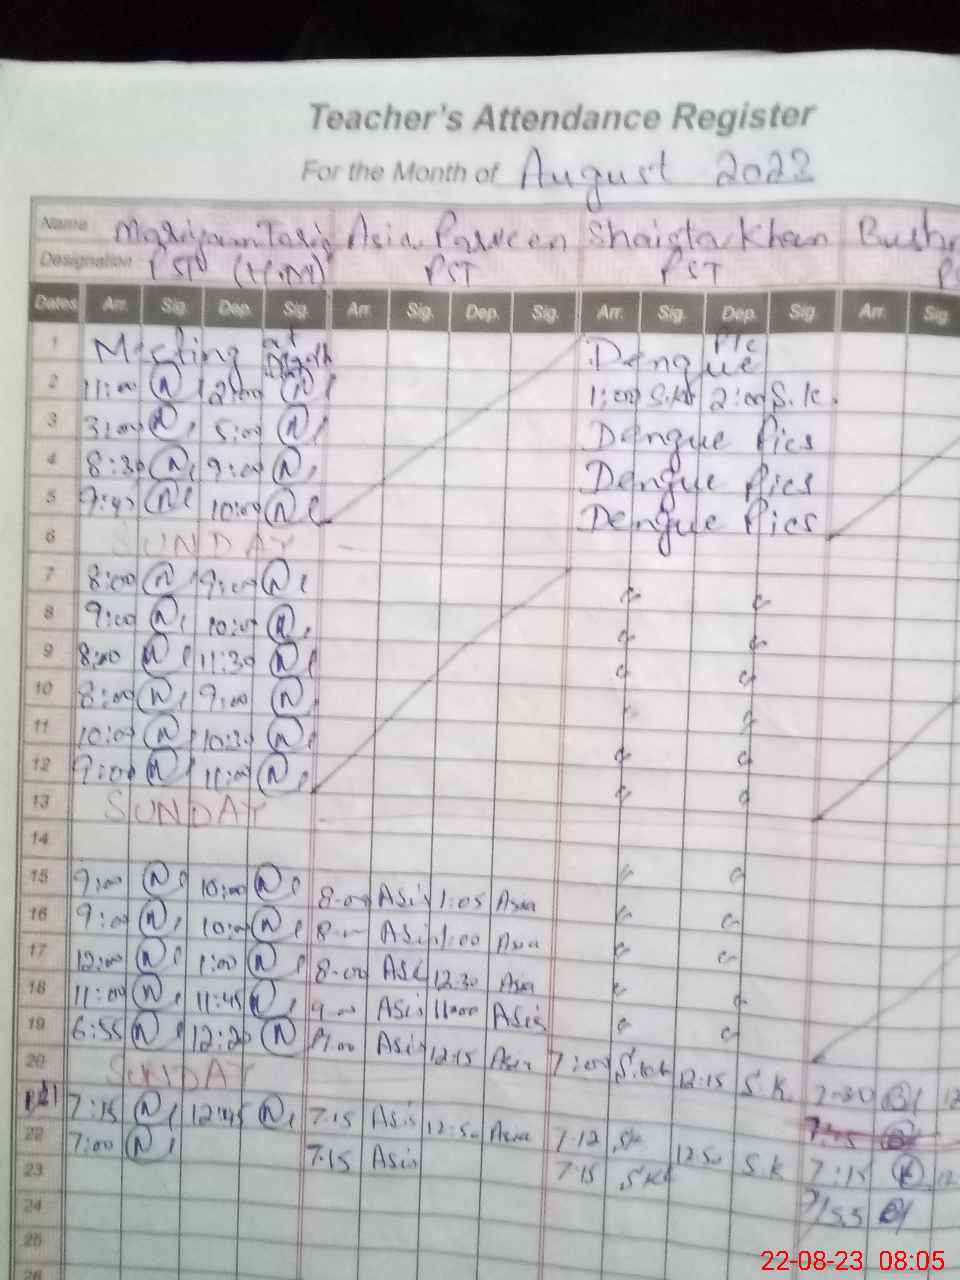 Teacher's Attendance Register
For the Month of August 2023
Name Mariyam Tariq Asia Parveen Shaista Khan Bushr
Designation PST (H.M) PST PST
Dates Arr. Sig. Dep. Sig. Arr. Sig. Dep. Sig. Arr. Sig. Dep. Sig. Arr. Sig
1 Meeting at Dengue Pic
2 11:00 2:00 1:00 S.K 2:00 S.K.
3 3:00 5:00 Dengue Pics
4 8:30 9:00 Dengue Pics
5 9:40 10:00 Dengue Pics
6 SUNDAY
7 8:00 9:00
8 9:00 10:00
9 8:00 11:30
10 8:00 9:00
11 10:00 10:30
12 9:00 11:00
13 SUNDAY
14
15 9:00 10:00 8-00 Asia 1:05 Asia
16 9:00 10:00 8- Asia 1:00 Asia
17 12:00 1:00 8-00 12-30 Asia
18 11:00 11:45 9-00 Asia 11:00 Asia
19 6:55 12:20 Asia 12:15 Asia 7:00 S.K 12:15 S.K 7-30
20 SUNDAY
21 7:15 12:45 7.15 Asia 12:50 Asia 7.12 SK 12:50 S.K 7:15
22 7:00 7.15 Asia 7.15 S.K 7:55
23
24
25
26
22-08-23 08:05